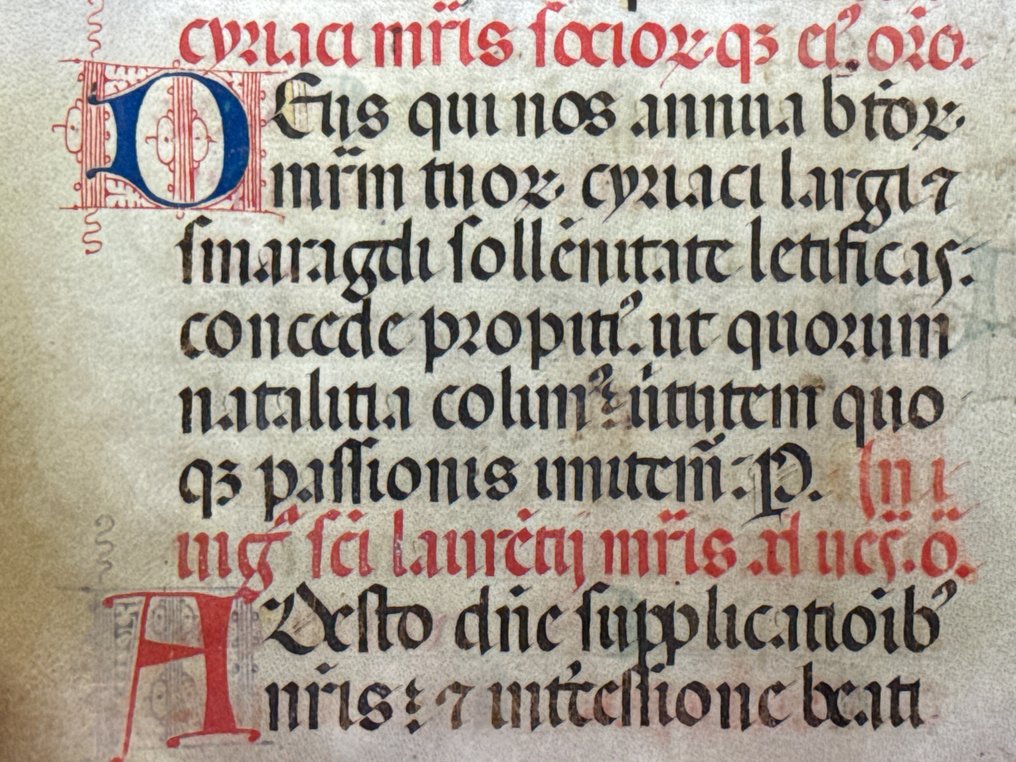 cyriaci mr̄is socioꝝqꝫ eiꝰ. or̄o.
DEus qui nos annua bt̄oꝝ
mr̄m tuoꝝ cyriaci largi ⁊
smaragdi sollēnitate letificas:
concede propitiꝰ. ut quorum
natalitia colimꝰ: ūtutem quo
qꝫ passionis imitem̄: P. In ui
uigᵃ sc̄i laurētij mr̄is. ad ues̄. ō.
ADesto dn̄e supplicatōibꝰ
nr̄is: ⁊ int̄cessione beati